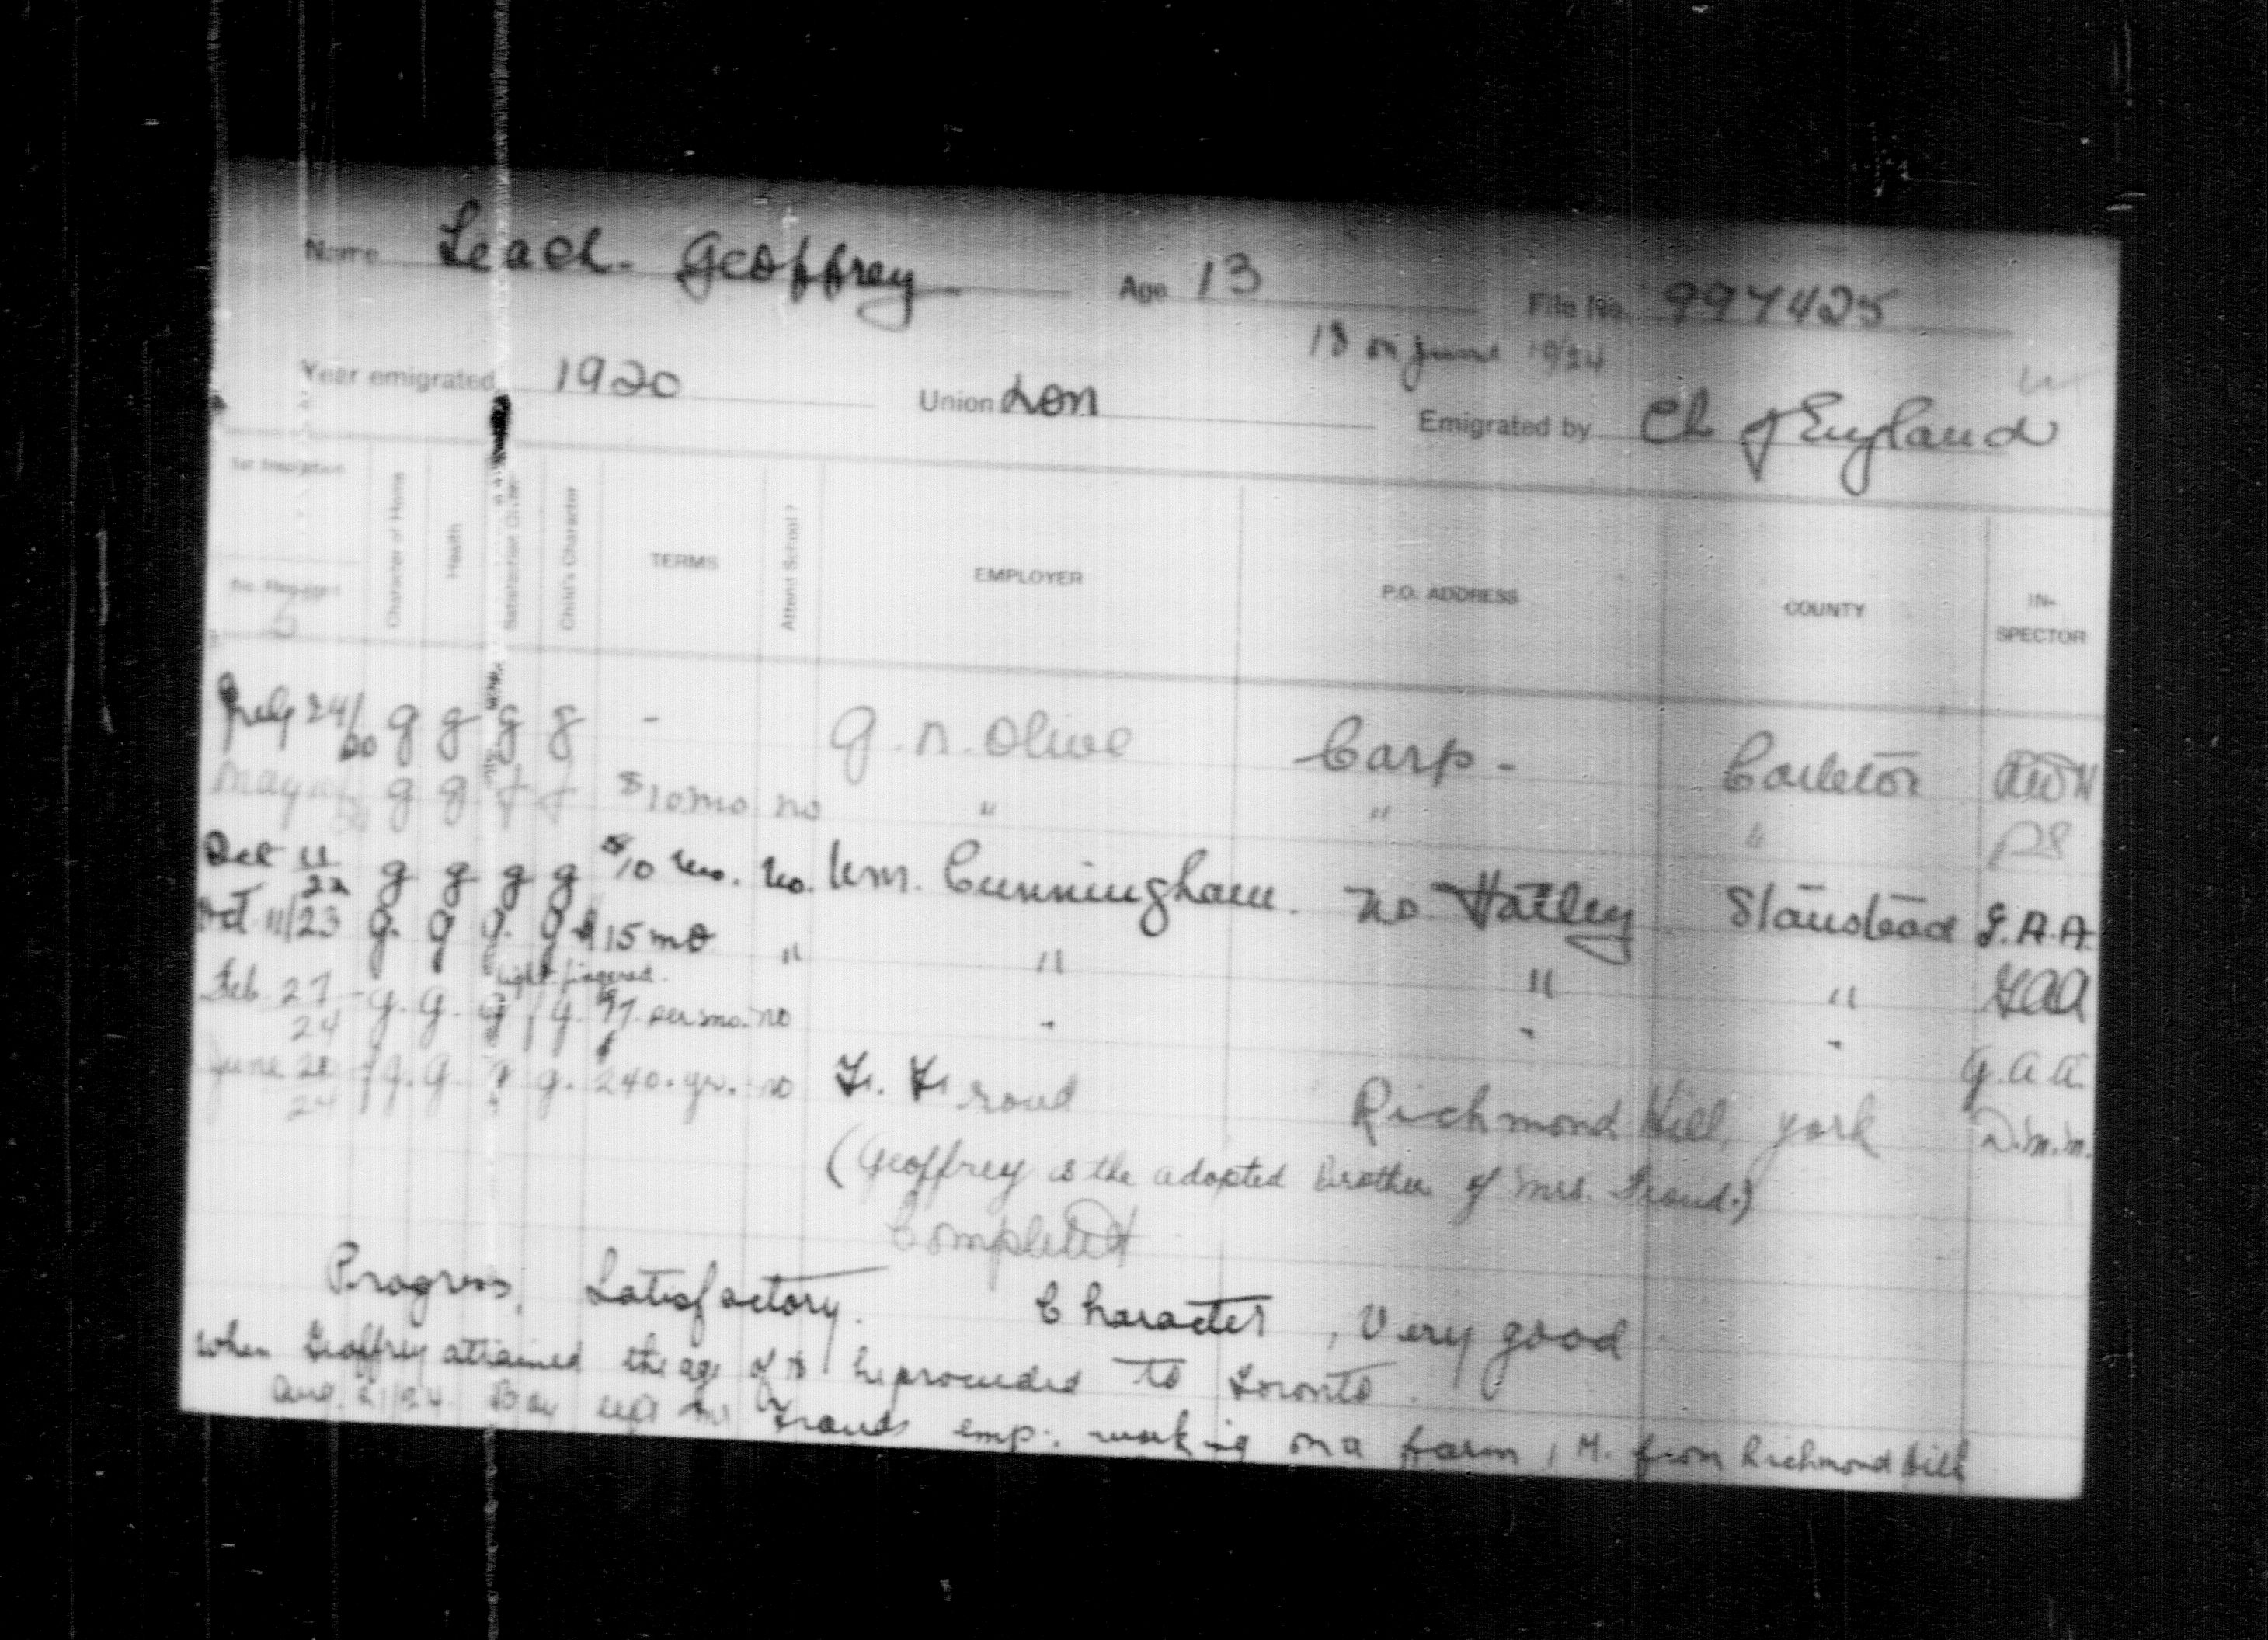 Name Leach. Geoffrey Age 13 File No. 997425
18 on June 19/24
Year emigrated 1920 Union Lon Emigrated by Ch of England
1st Inspection
No. Reports
Character of Home Health Satisfaction Given Child's Character TERMS Attend School? EMPLOYER P.O. ADDRESS COUNTY IN-SPECTOR
July 24/20 g g g g - G. N. Olive Carp - Carleton
May g g f f $10 mo no " " " PS
Dec 11 22 g g g g $10 mo. No. Wm. Cunningham. No Hatley Stanstead G.A.A.
Oct. 11/23 g. g g. g $15 mo " " " " GAA
light fingered.
Feb. 27 24 - g. g. g / g. $7. per mo. no " " " G.A.A.
June 20 24 g. g g g. $240. yr. no F. Froud Richmond Hill, York D.M.M.
(Geoffrey is the adopted brother of Mrs. Froud.)
Completed
Progress, Satisfactory. Character, Very good
When Geoffrey attained the age of 18 he proceeded to Toronto.
Aug. 21/24 Boy left Mr Frouds emp. working on a farm 1 M. from Richmond Hill